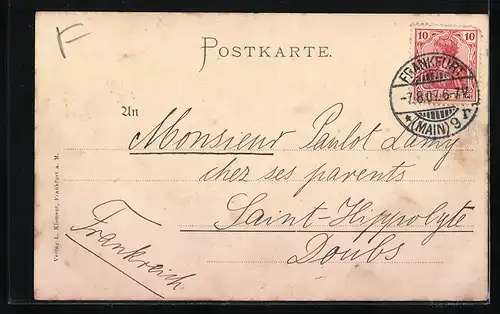 F
POSTKARTE.
10 10
FRANKFURT
-7.8.07.6-7
*(MAIN) 9 r.
An
Monsieur Paulot Lamy
chez ses parents
Saint-Hippolyte
Doubs
Frankreich
Verlag L. Klement, Frankfurt a. M.